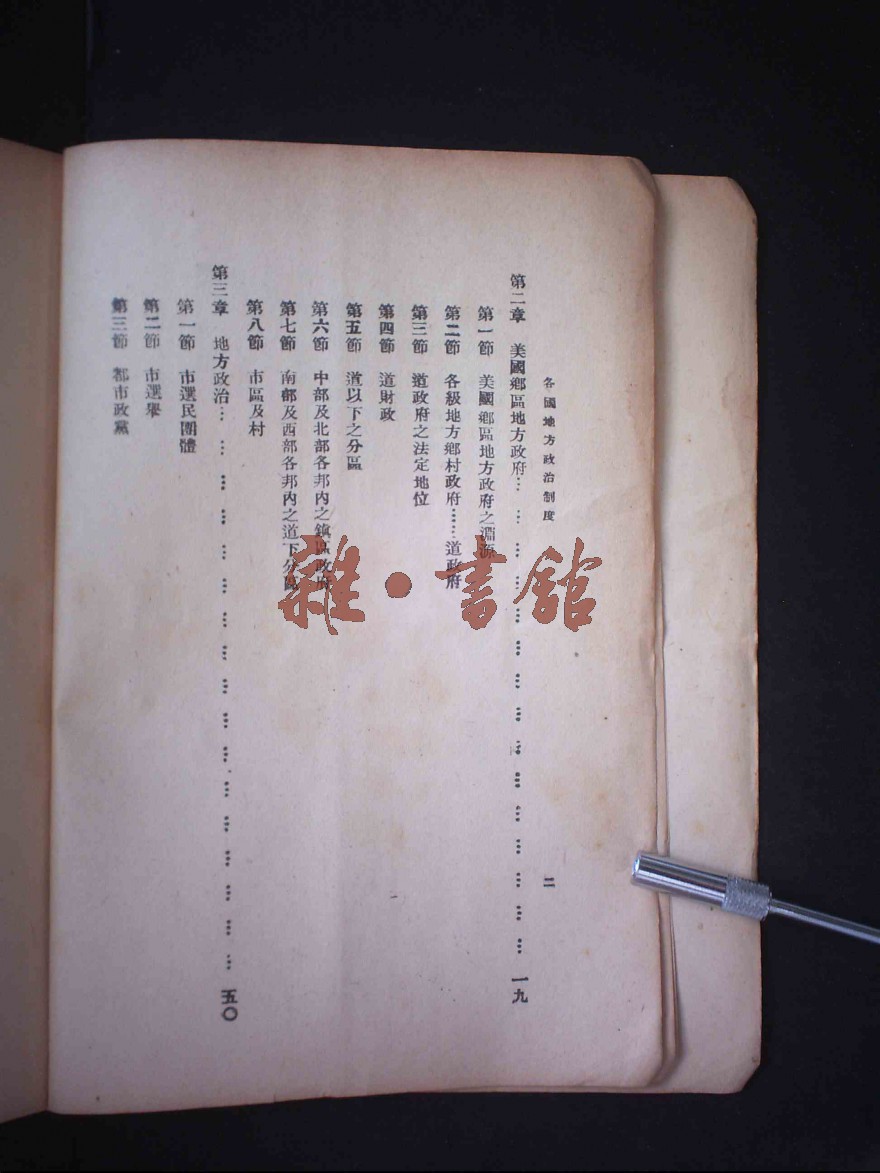 各國地方政治制度
二
第二章 美國鄉區地方政府…………………………………………一九
第一節 美國鄉區地方政府之淵源
第二節 各級地方鄉村政府……道政府
第三節 道政府之法定地位
第四節 道財政
第五節 道以下之分區
第六節 中部及北部各邦內之鎮區政府
第七節 南部及西部各邦內之道下分區
第八節 市區及村
第三章 地方政治…………………………………………五〇
第一節 市選民團體
第二節 市選舉
第三節 都市政黨
雜·書館